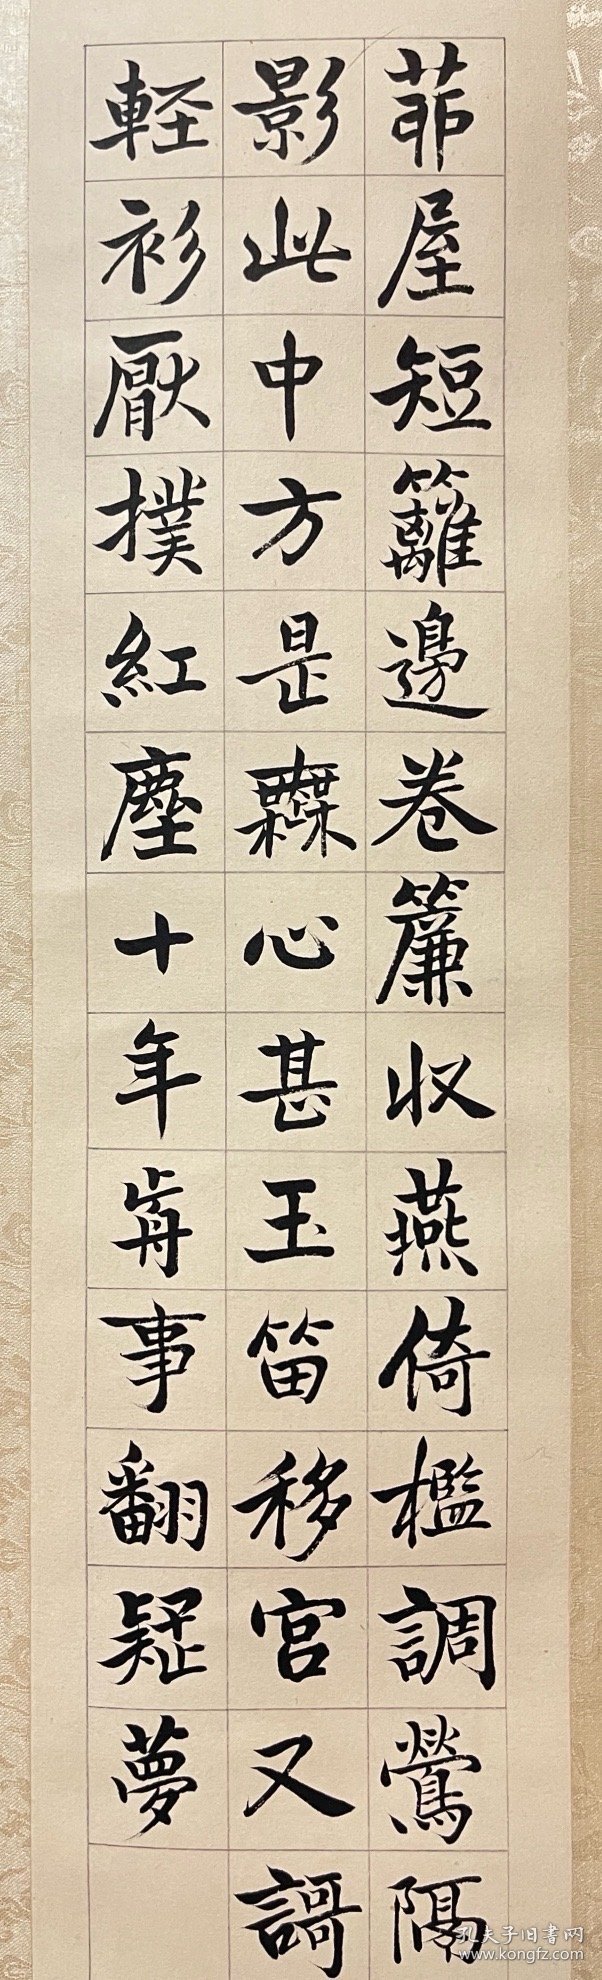 茆屋短籬邊卷簾収燕倚檻調鶯隔
影此中方是橆心甚玉笛移宮又謌
軽衫厭撲紅塵十年歬事翻疑夢
孔夫子旧書网
www.kongfz.com